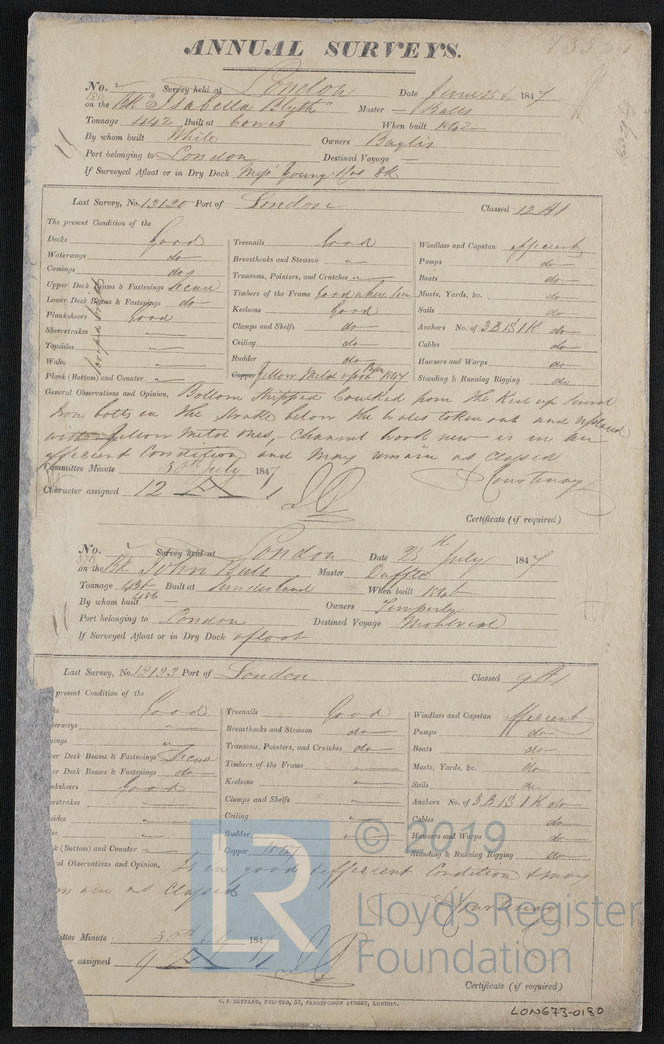 ANNUAL SURVEYS.
No. Survey held at London Date June 1847
on the "Isabella Blyth" Master
Tonnage 442 Built at Cowes When built 1842
By whom built White Owners Baylis
Port belonging to London Destined Voyage
If Surveyed Afloat or in Dry Dock Young
Last Survey, No. 13120 Port of London Classed 12 A 1
The present Condition of the
Decks Good Treenails Good Windlass and Capstan efficient
Waterways do Breasthooks and Stemson Pumps do
Comings do Transons, Pointers, and Crutches Boats do
Upper Deck Beams & Fastenings Secure Timbers of the Frame Good where seen Masts, Yards, &c. do
Lower Deck Beams & Fastenings do Keelsons Good Sails do
Planksheers Good Clamps and Shelfs do Anchors No. of 3 B 1 S 1 K do
Sheerstrakes Ceiling do Cables do
Topsides Rudder do Hawsers and Warps do
Wales Copper Yellow Metal 1847 Standing & Running Rigging do
Plank (Bottom) and Counter
General Observations and Opinion, Bottom Stripped Caulked from the Keel up
Iron bolts in the Strake below the Wales taken out and replaced
with Yellow Metal ones, Channel new is in an
efficient Condition and may remain as Classed
Committee Minute 30th July 1847 Courtenay
Character assigned 12 A 1
Certificate (if required)
No. Survey held at London Date 23 July 1847
on the John Bull Master
Tonnage Built at Sunderland When built
486
By whom built Owners
Port belonging to London Destined Voyage Montreal
If Surveyed Afloat or in Dry Dock afloat
Last Survey, No. 13193 Port of London Classed 9 A 1
present Condition of the
Good Treenails Good Windlass and Capstan efficient
erways Breasthooks and Stemson do Pumps do
Transons, Pointers, and Crutches do Boats do
er Deck Beams & Fastenings Secure Timbers of the Frame Masts, Yards, &c. do
er Deck Beams & Fastenings do Keelsons Sails do
Good Clamps and Shelfs Anchors No. of 3 B 1 S 1 K do
rstrakes Ceiling Cables do
sides Rudder Hawsers and Warps do
Copper Standing & Running Rigging do
k (Bottom) and Counter
ral Observations and Opinion, Is in good & efficient Condition & may
as Classed
Courtenay
ittee Minute 30th July 1847
r assigned 9 A 1
Certificate (if required)
C. F. SEYFANG, PRINTER, 57, FARRINGDON STREET, LONDON.
LON673-0180
© 2019
Lloyd's Register
Foundation
LR